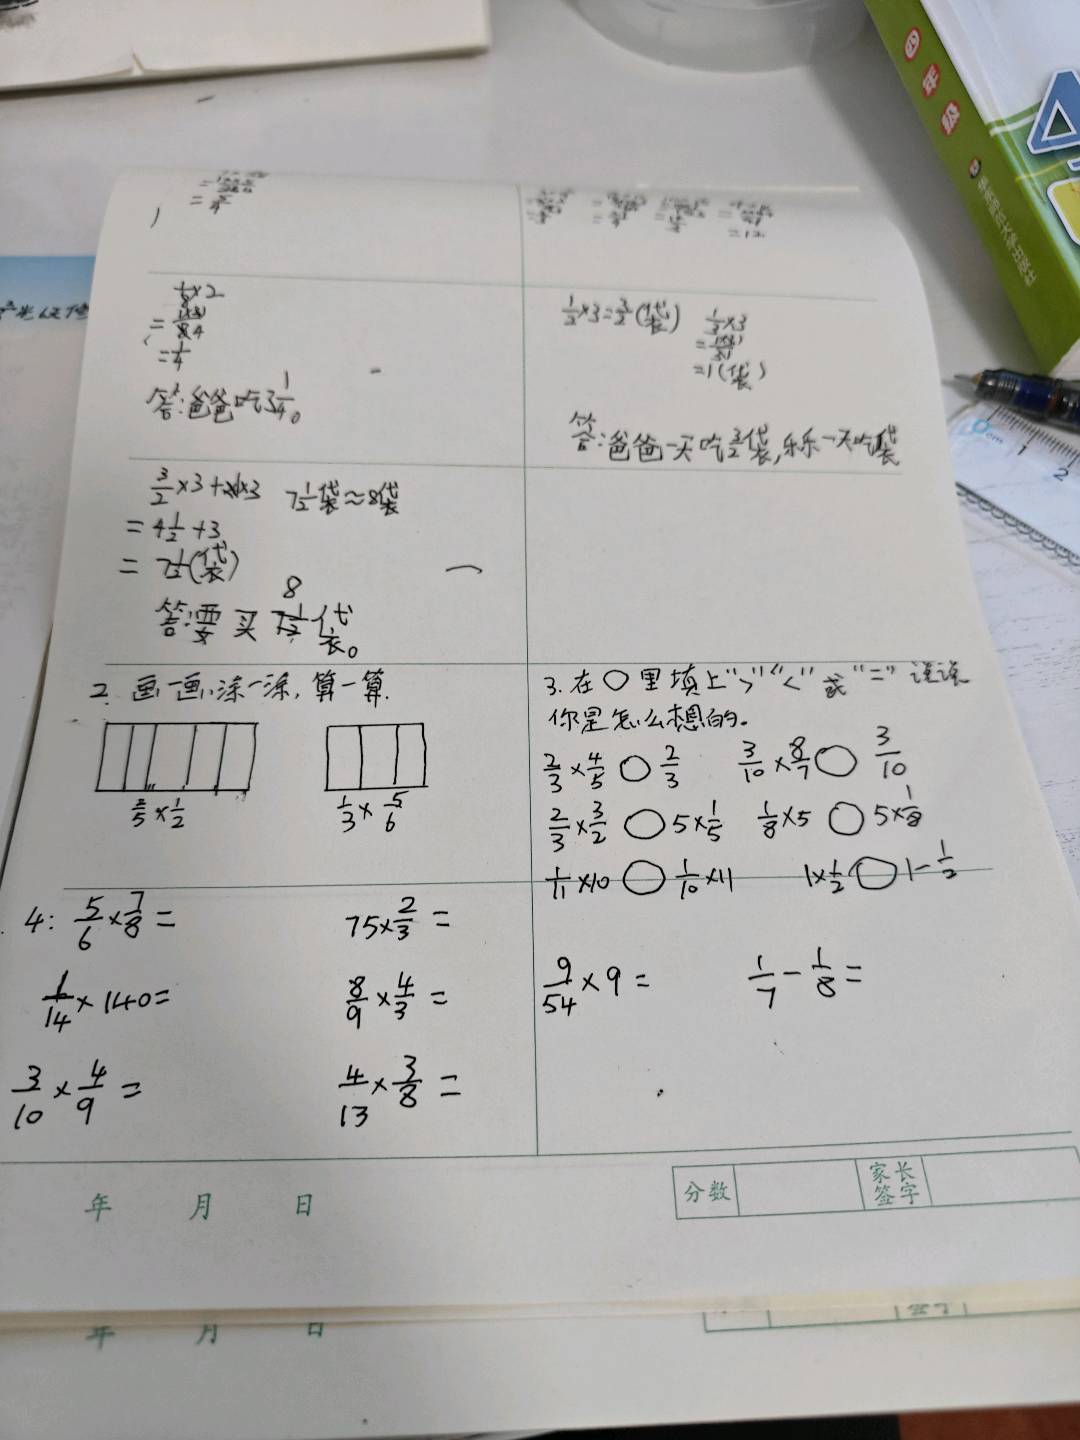 四年级
1/8×2
=1/4
答:爸爸吃了1/4。
1/2×3=3/2(袋)
1/3×3
=1(袋)
答:爸爸一天吃3/2袋,乐乐一天吃1袋
3/2×3+1×3 7 1/2袋≈8袋
=4 1/2+3
=7 1/2(袋)
8
答:要买7 1/2袋。
2. 画一画,涂一涂,算一算.
2/5×1/2 1/3×5/6
3. 在○里填上“>”“<”或“=”说说
你是怎么想的。
2/3×4/5○2/3 3/10×8/7○3/10
2/3×3/2○5×1/5 1/8×5○5×1/8
1/11×10○1/10×11 1×1/2○1-1/2
4: 5/6×7/8= 75×2/3=
1/14×140= 8/9×4/3= 9/54×9= 1/7-1/8=
3/10×4/9= 4/13×3/8=
分数 家长签字
年 月 日
年 月 日
0cm 1 2